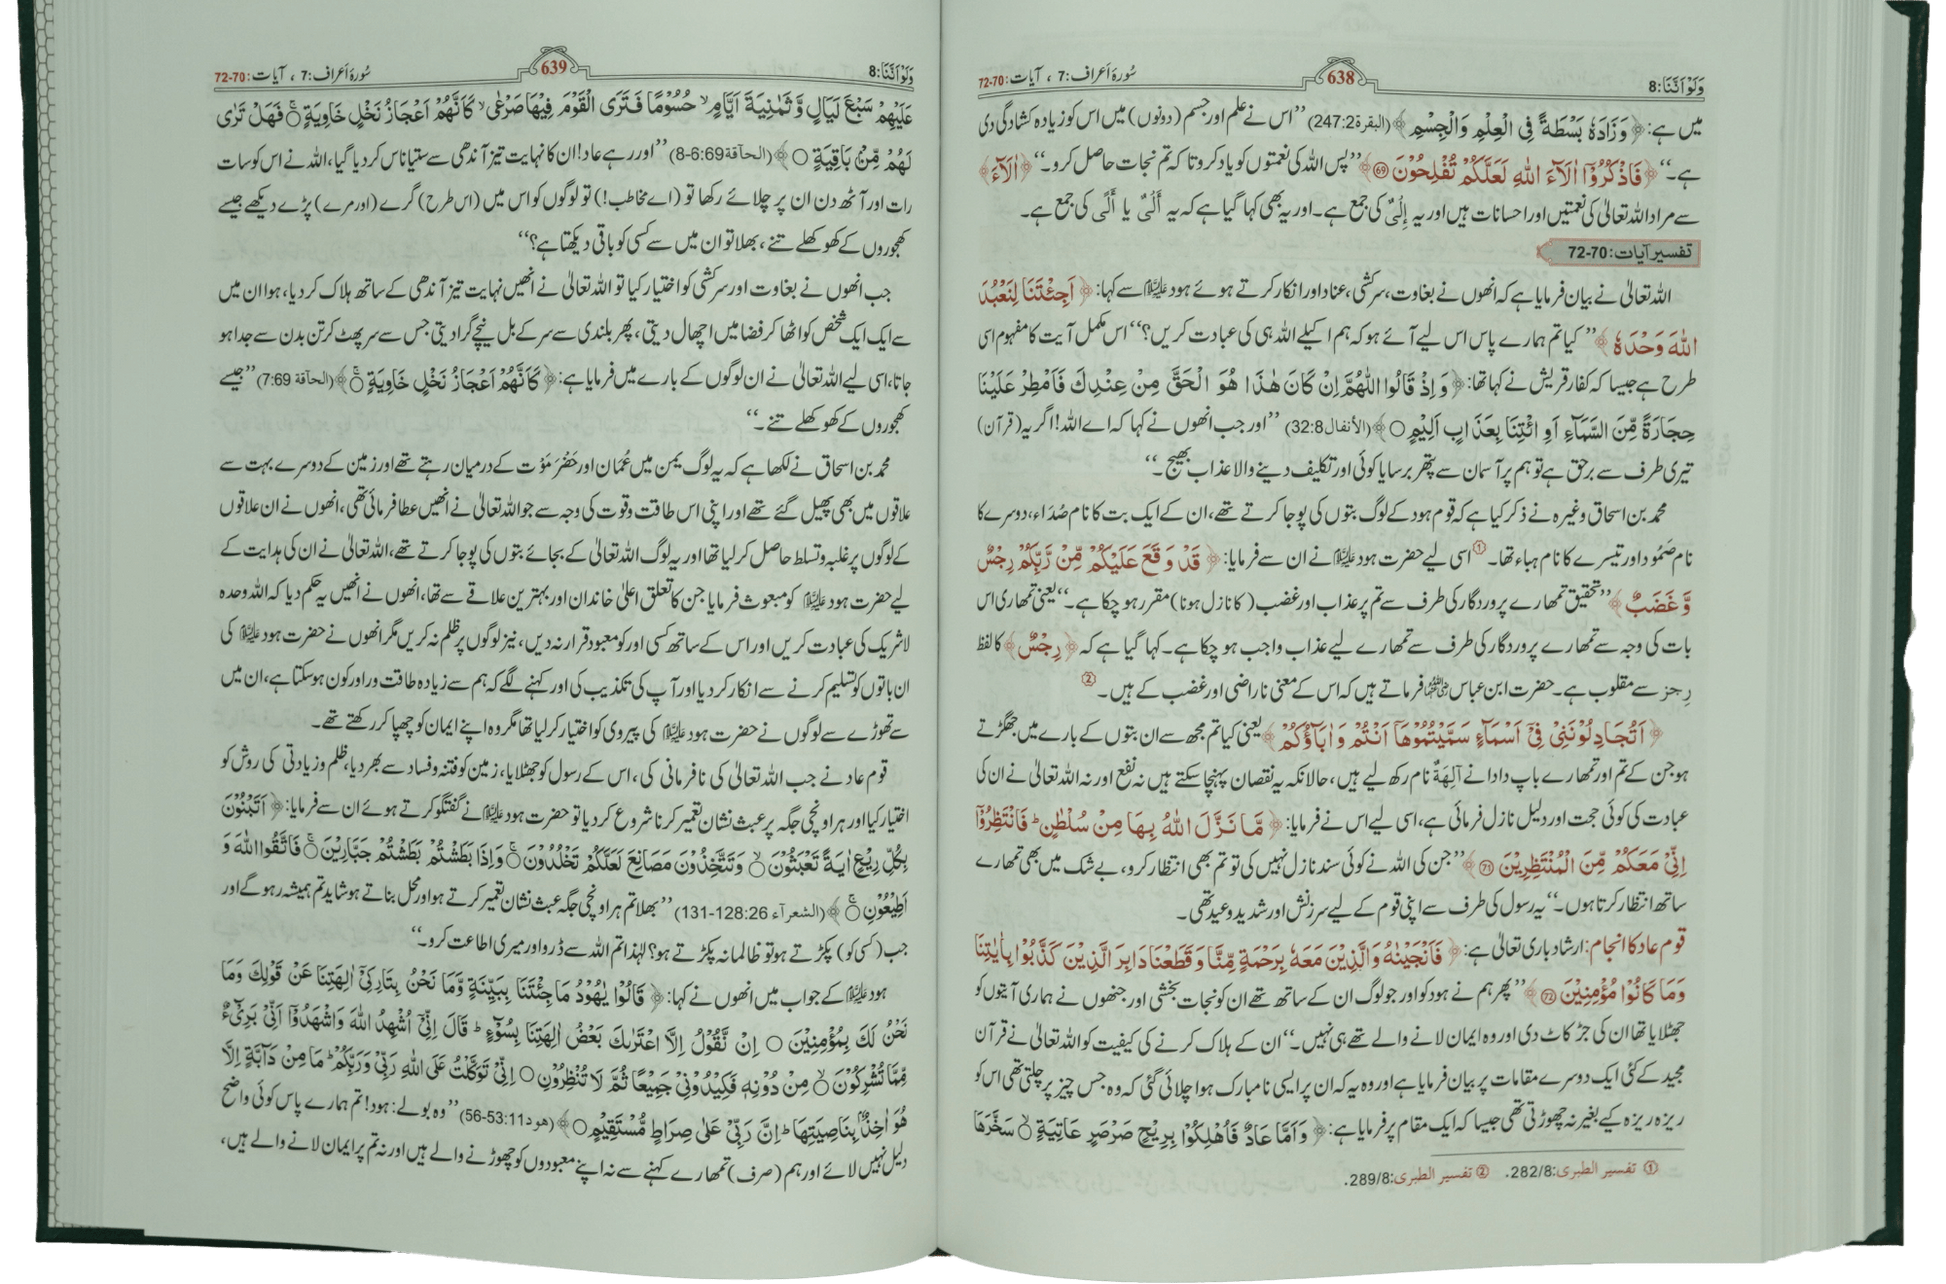 وَلَوْ اَنَّنَا:8
638
سُورہ اَعراف:7 ، آیات:70-72
میں ہے: ﴿ وَزَادَهٗ بَسْطَةً فِی الْعِلْمِ وَالْجِسْمِ ﴾ (البقرة 247:2) ’’اس نے علم اور جسم (دونوں) میں اس کو زیادہ کشادگی دی
ہے۔‘‘ ﴿ فَاذْكُرُوْۤا اٰلَآءَ اللّٰهِ لَعَلَّكُمْ تُفْلِحُوْنَ ﴾69 ’’پس اللہ کی نعمتوں کو یاد کرو تا کہ تم نجات حاصل کرو۔‘‘ ﴿ اٰلَآءَ ﴾
سے مراد اللہ تعالیٰ کی نعمتیں اور احسانات ہیں اور یہ إِلًى کی جمع ہے۔ اور یہ بھی کہا گیا ہے کہ یہ أَلًى یا أَلًى کی جمع ہے۔
تفسیر آیات:70-72
اللہ تعالیٰ نے بیان فرمایا ہے کہ انھوں نے بغاوت، سرکشی، عناد اور انکار کرتے ہوئے ہود علیہ السلام سے کہا: ﴿ اَجِئْتَنَا لِنَعْبُدَ
اللّٰهَ وَحْدَهٗ ﴾ ’’کیا تم ہمارے پاس اس لیے آئے ہو کہ ہم اکیلے اللہ ہی کی عبادت کریں؟‘‘ اس مکمل آیت کا مفہوم اسی
طرح ہے جیسا کہ کفار قریش نے کہا تھا: ﴿ وَاِذْ قَالُوا اللّٰهُمَّ اِنْ كَانَ هٰذَا هُوَ الْحَقَّ مِنْ عِنْدِكَ فَاَمْطِرْ عَلَيْنَا
حِجَارَةً مِّنَ السَّمَآءِ اَوِ ائْتِنَا بِعَذَابٍ اَلِيْمٍ ○ ﴾ (الأنفال 32:8) ’’اور جب انھوں نے کہا کہ اے اللہ! اگر یہ (قرآن)
تیری طرف سے برحق ہے تو ہم پر آسمان سے پتھر برسا یا کوئی اور تکلیف دینے والا عذاب بھیج۔‘‘
محمد بن اسحاق وغیرہ نے ذکر کیا ہے کہ قوم ہود کے لوگ بتوں کی پوجا کرتے تھے، ان کے ایک بت کا نام صُدَاء، دوسرے کا
نام صَمُود اور تیسرے کا نام ہباء تھا۔① اسی لیے حضرت ہود علیہ السلام نے ان سے فرمایا: ﴿ قَدْ وَقَعَ عَلَيْكُمْ مِّنْ رَّبِّكُمْ رِجْسٌ
وَّغَضَبٌ ﴾ ’’تحقیق تمھارے پروردگار کی طرف سے تم پر عذاب اور غضب (کا نازل ہونا) مقرر ہو چکا ہے۔‘‘ یعنی تمھاری اس
بات کی وجہ سے تمھارے پروردگار کی طرف سے تمھارے لیے عذاب واجب ہو چکا ہے۔ کہا گیا ہے کہ ﴿ رِجْسٌ ﴾ کا لفظ
رِجز سے مقلوب ہے۔ حضرت ابن عباس رضی اللہ عنہما فرماتے ہیں کہ اس کے معنی ناراضی اور غضب کے ہیں۔②
﴿ اَتُجَادِلُوْنَنِيْ فِيْۤ اَسْمَآءٍ سَمَّيْتُمُوْهَاۤ اَنْتُمْ وَاٰبَآؤُكُمْ ﴾ یعنی کیا تم مجھ سے ان بتوں کے بارے میں جھگڑتے
ہو جن کے تم اور تمھارے باپ دادا نے آلِهَةٌ نام رکھ لیے ہیں، حالانکہ یہ نقصان پہنچا سکتے ہیں نہ نفع اور نہ اللہ تعالیٰ نے ان کی
عبادت کی کوئی حجت اور دلیل نازل فرمائی ہے، اسی لیے اس نے فرمایا: ﴿ مَّا نَزَّلَ اللّٰهُ بِهَا مِنْ سُلْطٰنٍ ؕ فَانْتَظِرُوْۤا
اِنِّيْ مَعَكُمْ مِّنَ الْمُنْتَظِرِيْنَ 71 ﴾ ’’جن کی اللہ نے کوئی سند نازل نہیں کی تو تم بھی انتظار کرو، بے شک میں بھی تمھارے
ساتھ انتظار کرتا ہوں۔‘‘ یہ رسول کی طرف سے اپنی قوم کے لیے سرزنش اور شدید وعید تھی۔
قوم عاد کا انجام: ارشاد باری تعالیٰ ہے: ﴿ فَاَنْجَيْنٰهُ وَالَّذِيْنَ مَعَهٗ بِرَحْمَةٍ مِّنَّا وَقَطَعْنَا دَابِرَ الَّذِيْنَ كَذَّبُوْا بِاٰيٰتِنَا
وَمَا كَانُوْا مُؤْمِنِيْنَ 72 ﴾ ’’پھر ہم نے ہود کو اور جو لوگ ان کے ساتھ تھے ان کو نجات بخشی اور جنھوں نے ہماری آیتوں کو
جھٹلایا تھا ان کی جڑ کاٹ دی اور وہ ایمان لانے والے تھے ہی نہیں۔‘‘ ان کے ہلاک کرنے کی کیفیت کو اللہ تعالیٰ نے قرآن
مجید کے کئی ایک دوسرے مقامات پر بیان فرمایا ہے اور وہ یہ کہ ان پر ایسی نا مبارک ہوا چلائی گئی کہ وہ جس چیز پر چلتی تھی اس کو
ریزہ ریزہ کیے بغیر نہ چھوڑتی تھی جیسا کہ ایک مقام پر فرمایا ہے: ﴿ وَاَمَّا عَادٌ فَاُهْلِكُوْا بِرِيْحٍ صَرْصَرٍ عَاتِيَةٍ ○ سَخَّرَهَا
① تفسير الطبري:282/8. ② تفسير الطبري:289/8.
وَلَوْ اَنَّنَا:8
639
سُورہ اَعراف:7 ، آیات:70-72
عَلَيْهِمْ سَبْعَ لَيَالٍ وَّثَمٰنِيَةَ اَيَّامٍ ۙ حُسُوْمًا فَتَرَى الْقَوْمَ فِيْهَا صَرْعٰى ۙ كَاَنَّهُمْ اَعْجَازُ نَخْلٍ خَاوِيَةٍ ○ فَهَلْ تَرٰى
لَهُمْ مِّنْ بَاقِيَةٍ ○ ﴾ (الحآقة 6:69-8) ’’اور رہے عاد! ان کا نہایت تیز آندھی سے ستیاناس کر دیا گیا، اللہ نے اس کو سات
رات اور آٹھ دن ان پر چلائے رکھا تو (اے مخاطب!) تو لوگوں کو اس میں (اس طرح) گرے (اور مرے) پڑے دیکھے جیسے
کھجوروں کے کھوکھلے تنے، بھلا تو ان میں سے کسی کو باقی دیکھتا ہے؟‘‘
جب انھوں نے بغاوت اور سرکشی کو اختیار کیا تو اللہ تعالیٰ نے انھیں نہایت تیز آندھی کے ساتھ ہلاک کر دیا، ہوا ان میں
سے ایک ایک شخص کو اٹھا کر فضا میں اچھال دیتی، پھر بلندی سے سر کے بل نیچے گرا دیتی جس سے سر پھٹ کر تن بدن سے جدا ہو
جاتا، اسی لیے اللہ تعالیٰ نے ان لوگوں کے بارے میں فرمایا ہے: ﴿ كَاَنَّهُمْ اَعْجَازُ نَخْلٍ خَاوِيَةٍ ○ ﴾ (الحآقة 7:69) ’’جیسے
کھجوروں کے کھوکھلے تنے۔‘‘
محمد بن اسحاق نے لکھا ہے کہ یہ لوگ یمن میں عُمَان اور حَضْرَ مَوْت کے درمیان رہتے تھے اور زمین کے دوسرے بہت سے
علاقوں میں بھی پھیل گئے تھے اور اپنی اس طاقت و قوت کی وجہ سے جو اللہ تعالیٰ نے انھیں عطا فرمائی تھی، انھوں نے ان علاقوں
کے لوگوں پر غلبہ و تسلط حاصل کر لیا تھا اور یہ لوگ اللہ تعالیٰ کے بجائے بتوں کی پوجا کرتے تھے، اللہ تعالیٰ نے ان کی ہدایت کے
لیے حضرت ہود علیہ السلام کو مبعوث فرمایا جن کا تعلق اعلیٰ خاندان اور بہترین علاقے سے تھا، انھوں نے انھیں یہ حکم دیا کہ اللہ وحدہ
لا شریک کی عبادت کریں اور اس کے ساتھ کسی اور کو معبود قرار نہ دیں، نیز لوگوں پر ظلم نہ کریں مگر انھوں نے حضرت ہود علیہ السلام کی
ان باتوں کو تسلیم کرنے سے انکار کر دیا اور آپ کی تکذیب کی اور کہنے لگے کہ ہم سے زیادہ طاقت ور اور کون ہو سکتا ہے، ان میں
سے تھوڑے سے لوگوں نے حضرت ہود علیہ السلام کی پیروی کو اختیار کر لیا تھا مگر وہ اپنے ایمان کو چھپا کر رکھتے تھے۔
قوم عاد نے جب اللہ تعالیٰ کی نافرمانی کی، اس کے رسول کو جھٹلایا، زمین کو فتنہ و فساد سے بھر دیا، ظلم و زیادتی کی روش کو
اختیار کیا اور ہر اونچی جگہ پر عبث نشان تعمیر کرنا شروع کر دیا تو حضرت ہود علیہ السلام نے گفتگو کرتے ہوئے ان سے فرمایا: ﴿ اَتَبْنُوْنَ
بِكُلِّ رِيْعٍ اٰيَةً تَعْبَثُوْنَ ○ وَتَتَّخِذُوْنَ مَصَانِعَ لَعَلَّكُمْ تَخْلُدُوْنَ ○ وَاِذَا بَطَشْتُمْ بَطَشْتُمْ جَبَّارِيْنَ ○ فَاتَّقُوا اللّٰهَ وَ
اَطِيْعُوْنِ ○ ﴾ (الشعرآء 128:26-131) ’’بھلا تم ہر اونچی جگہ عبث نشان تعمیر کرتے ہو اور محل بناتے ہو شاید تم ہمیشہ رہو گے اور
جب (کسی کو) پکڑتے ہو تو ظالمانہ پکڑتے ہو؟ لہٰذا تم اللہ سے ڈرو اور میری اطاعت کرو۔‘‘
ہود علیہ السلام کے جواب میں انھوں نے کہا: ﴿ قَالُوْا يٰهُوْدُ مَا جِئْتَنَا بِبَيِّنَةٍ وَّمَا نَحْنُ بِتَارِكِيْۤ اٰلِهَتِنَا عَنْ قَوْلِكَ وَمَا
نَحْنُ لَكَ بِمُؤْمِنِيْنَ ○ اِنْ نَّقُوْلُ اِلَّا اعْتَرٰىكَ بَعْضُ اٰلِهَتِنَا بِسُوْٓءٍ ؕ قَالَ اِنِّيْۤ اُشْهِدُ اللّٰهَ وَاشْهَدُوْۤا اَنِّيْ بَرِيْٓءٌ
مِّمَّا تُشْرِكُوْنَ ○ مِنْ دُوْنِهٖ فَكِيْدُوْنِيْ جَمِيْعًا ثُمَّ لَا تُنْظِرُوْنِ ○ اِنِّيْ تَوَكَّلْتُ عَلَى اللّٰهِ رَبِّيْ وَرَبِّكُمْ ؕ مَا مِنْ دَآبَّةٍ اِلَّا
هُوَ اٰخِذٌۢ بِنَاصِيَتِهَا ؕ اِنَّ رَبِّيْ عَلٰى صِرَاطٍ مُّسْتَقِيْمٍ ○ ﴾ (هود 53:11-56) ’’وہ بولے: ہود! تم ہمارے پاس کوئی واضح
دلیل نہیں لائے اور ہم (صرف) تمھارے کہنے سے نہ اپنے معبودوں کو چھوڑنے والے ہیں اور نہ تم پر ایمان لانے والے ہیں،